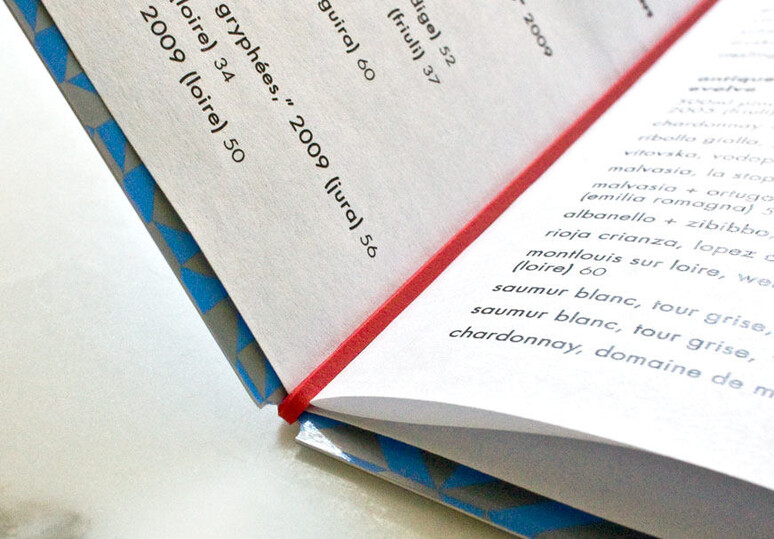 " 2009
dige) 52
(friuli) 37
guira) 60
gryphées," 2009 (jura) 56
(loire) 34
2009 (loire) 50
antique
evolve
500ml
2005 (friuli)
chardonnay
ribolla gialla,
vitovska, vodop
malvasia, la stop
malvasia + ortugo
(emilia ramagna) 5
albanello + zibibbo,
rioja crianza, lopez
montlouis sur loire, we
(loire) 60
saumur blanc, tour grise,
saumur blanc, tour grise,
chardonnay, domaine de m